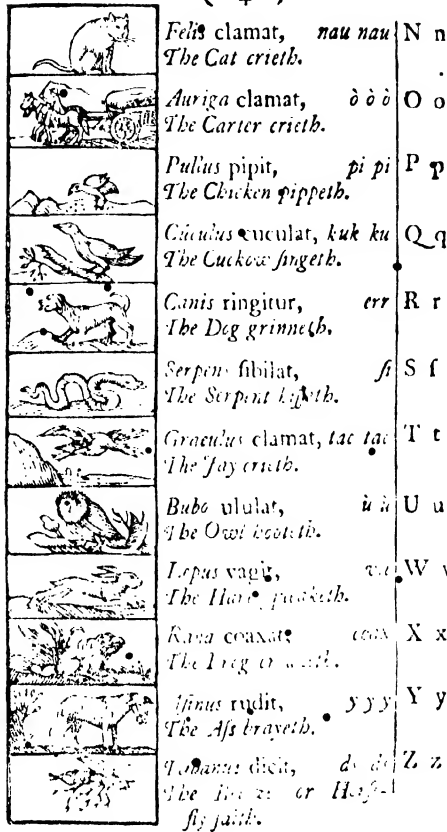 Felis clamat, nau nau N n
The Cat crieth.
Auriga clamat, ò ò ò O o
The Carter crieth.
Pullus pipit, pi pi P p
The Chicken pippeth.
Cuculus cuculat, kuk ku Q q
The Cuckow ſingeth.
Canis ringitur, err R r
The Dog grinneth.
Serpens ſibilat, ſi S ſ
The Serpent hiſſeth.
Graculus clamat, tac tac T t
The Jay crieth.
Bubo ululat, ù ù U u
The Owl hooteth.
Lepus vagit, va W w
The Hare ſqueaketh.
Rana coaxat, coax X x
The Frog croaketh.
Aſinus rudit, y y y Y y
The Aſs brayeth.
Tabanus dicit, Z z
The or Horſe-
fly ſaith.